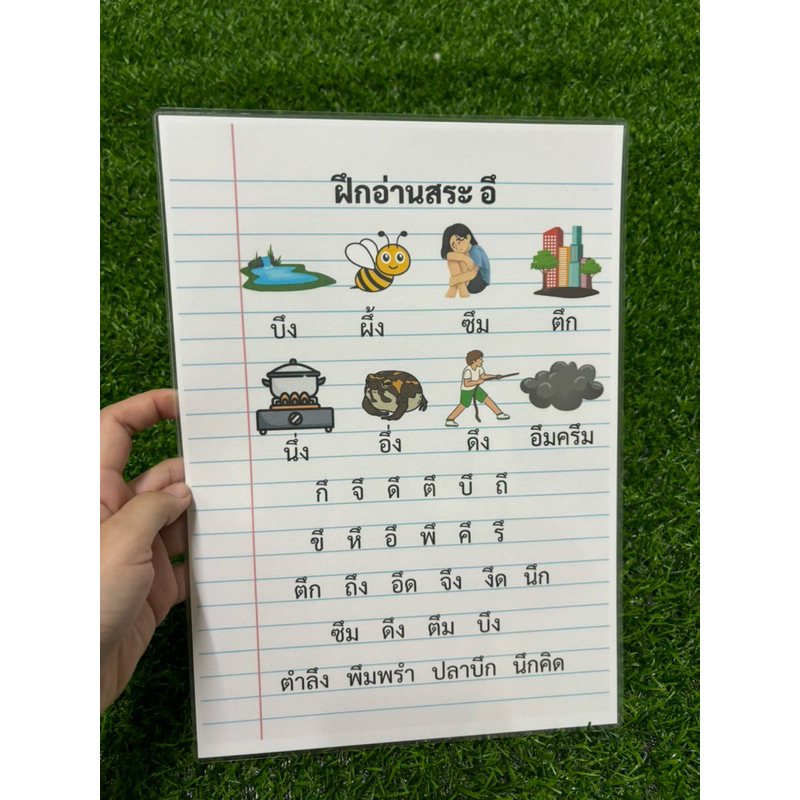 ฝึกอ่านสระ อึ
บึง ผึ้ง ซึม ตึก
นึ่ง อึ่ง ดึง อึมครึม
กึ จึ ดึ ตึ บึ ถึ
ขึ หึ อึ พึ คึ รึ
ตึก ถึง อึด จึง งึด นึก
ซึม ดึง ตึม บึง
ตำลึง พึมพรำ ปลาบึก นึกคิด